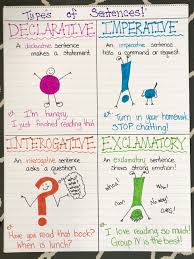 Types of Sentences!
DECLARATIVE
A declarative sentence
makes a statement.
I'm hungry.
I just finished reading that.
IMPERATIVE
An imperative sentence
tells a command or request.
Turn in your homework.
STOP chatting!
INTEROGATIVE
An interogative sentence
asks a question.
Have you read that book?
When is lunch?
EXCLAMATORY
An exclamatory sentence
shows strong emotion!
I love reading so much!
Group N is the best!